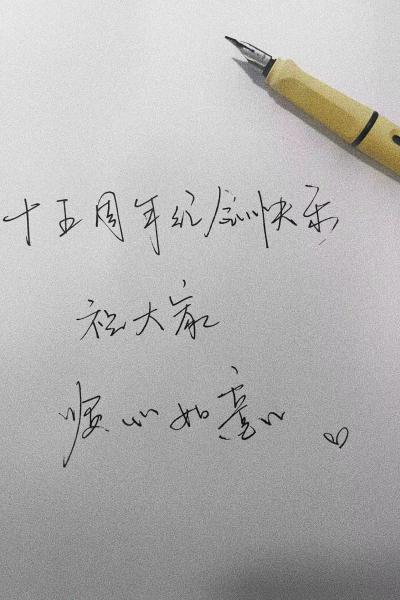 十五周年纪念快乐
祝大家
顺心如意♡